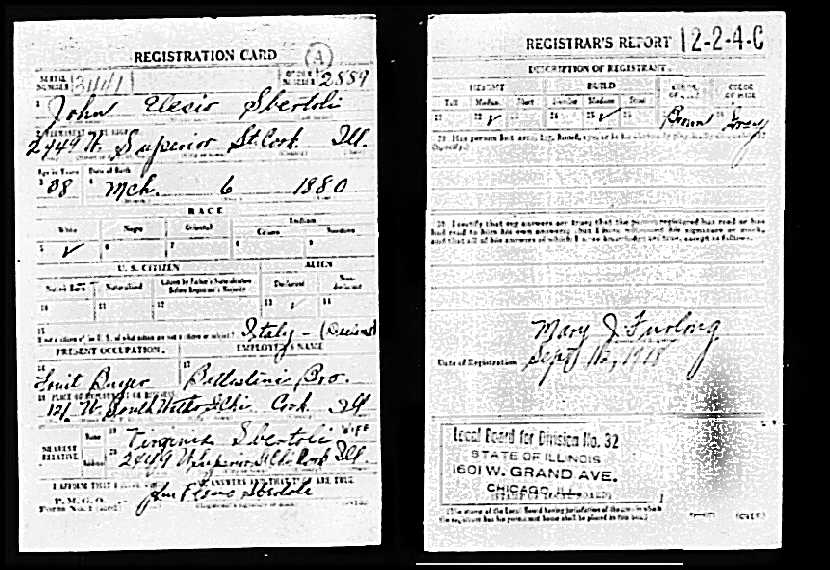 REGISTRATION CARD A
SERIAL NUMBER ORDER NUMBER 2559
1 John Sbertoli
2 PERMANENT HOME ADDRESS
2449 W. Superior St. Cook Ill.
Age in Years Date of Birth
3 38 4 Mch. 6 1880
RACE
White Negro Oriental Indian
Citizen Noncitizen
5 ✓ 6 7 8 9
U. S. CITIZEN ALIEN
Native Born Naturalized Citizen by Father's Naturalization Before Registrant's Majority Declarant Non-declarant
10 11 12 13 ✓ 14
15
If not a citizen of the U. S., of what nation are you a citizen or subject? Italy - (Declarant)
PRESENT OCCUPATION. EMPLOYER'S NAME
16 Fruit Buyer 17 Bro.
18 PLACE OF EMPLOYMENT OR BUSINESS
W. South Water St. Chi. Cook Ill
NEAREST RELATIVE Name 19 Virginia Sbertoli WIFE
Address 20 2449 W. Superior St. Chi. Cook Ill.
I AFFIRM THAT I HAVE VERIFIED ABOVE ANSWERS AND THAT THEY ARE TRUE
P. M. G. O.
Form No. 1 John Sbertoli
REGISTRAR'S REPORT 12-2-4-C
DESCRIPTION OF REGISTRANT
HEIGHT BUILD COLOR OF EYES COLOR OF HAIR
Tall Medium Short Slender Medium Stout
21 22 ✓ 23 24 25 ✓ 26 Brown Gray
29 Has person lost arm, leg, hand, eye, or is he obviously physically disqualified?
(Specify.)
30 I certify that my answers are true; that the person registered has read or has
had read to him his own answers; that I have witnessed his signature or mark,
and that all of his answers of which I have knowledge are true, except as follows:
Mary J. Furlong
Date of Registration Sept 12, 1918
Local Board for Division No. 32
STATE OF ILLINOIS
1601 W. GRAND AVE.
CHICAGO, ILL.
(STAMP OF LOCAL BOARD)
(The stamp of the Local Board having jurisdiction of the area in which
the registrant has his permanent home shall be placed in this box.)